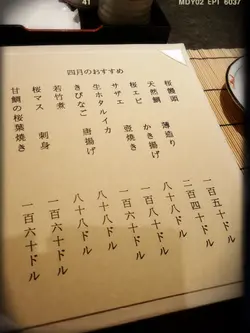 41
MDY02 EPT 6037
四月のおすすめ
桜饅頭
天然鯛 薄造り
桜エビ かき揚げ
サザエ 壺焼き
生ホタルイカ
きびなご 唐揚げ
若竹煮
桜マス 刺身
甘鯛の桜葉焼き
一百五十ドル
二百四十ドル
八十八ドル
一百八十ドル
八十八ドル
八十八ドル
一百六十ドル
一百六十ドル